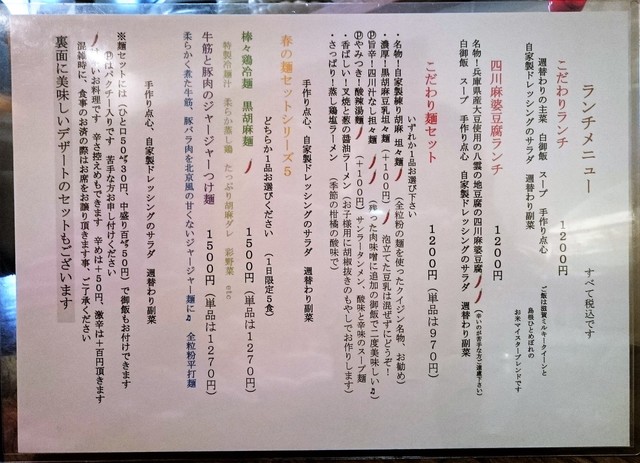 ランチメニュー　すべて税込です
こだわりランチ　１２００円
週替わりの主菜　白御飯　スープ　手作り点心
自家製ドレッシングのサラダ　週替わり副菜
ご飯は滋賀ミルキークイーンと
島根ひとめぼれの
お米マイスターブレンドです
四川麻婆豆腐ランチ　１２００円
名物！兵庫県産大豆使用の八雲の地豆腐の四川麻婆豆腐（辛いのが苦手な方ご遠慮下さい）
白御飯　スープ　手作り点心　自家製ドレッシングのサラダ　週替わり副菜
こだわり麺セット　１２００円（単品は９７０円）
いずれか１品お選び下さい
・名物！自家製練り胡麻　坦々麺（全粒粉の麺を使ったクイジン名物、お勧め）
・濃厚！黒胡麻豆乳坦々麺（＋１００円）泡立てた豆乳は混ぜずにどうぞ！
Ⓟ旨辛！四川汁なし担々麺（残った肉味噌に追加の御飯で二度美味しい♫）
Ⓟやみつき！酸辣湯麺（＋１００円）サンラータンメン、酸味と辛味のスープ麺
・香ばしい！叉焼と葱の醤油ラーメン（お子様用に胡椒抜きのもやしでお作りします）
・さっぱり！蒸し鶏塩ラーメン（季節の柑橘の酸味で）
手作り点心、自家製ドレッシングのサラダ　週替わり副菜
春の麺セットシリーズ５
どちらか１品お選びください　（１日限定５食）
棒々鶏冷麺　黒胡麻麺　１５００円（単品は１２７０円）
特製冷麺汁　柔らか蒸し鶏　たっぷり胡麻ダレ　彩野菜　etc
牛筋と豚肉のジャージャーつけ麺　１５００円（単品は１２７０円）
柔らかく煮た牛筋、豚バラ肉を北京風の甘くないジャージャー麺に♫　全粒粉平打麺
手作り点心、自家製ドレッシングのサラダ　週替わり副菜
※麺セットには（ひと口50㌘30円、中盛り百㌘50円）で御飯もお付けできます
Ⓟはパクチー入りです　苦手な方お申し付けください
辛いお料理です　辛さ控えめもできます　辛めは＋50円、激辛は＋百円頂きます
混雑時に、食事のお済の際はお席をお譲り頂きます事、ご了承ください
裏面に美味しいデザートのセットもございます